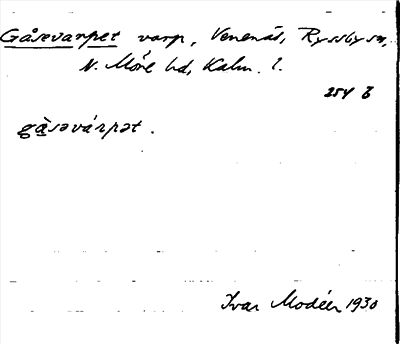 Gåsevarpet varp, Venenäs, Ryssby sn,
N. Möre hd, Kalm. l.
254 b
gåsəvárpət.
Ivar Modéer 1930